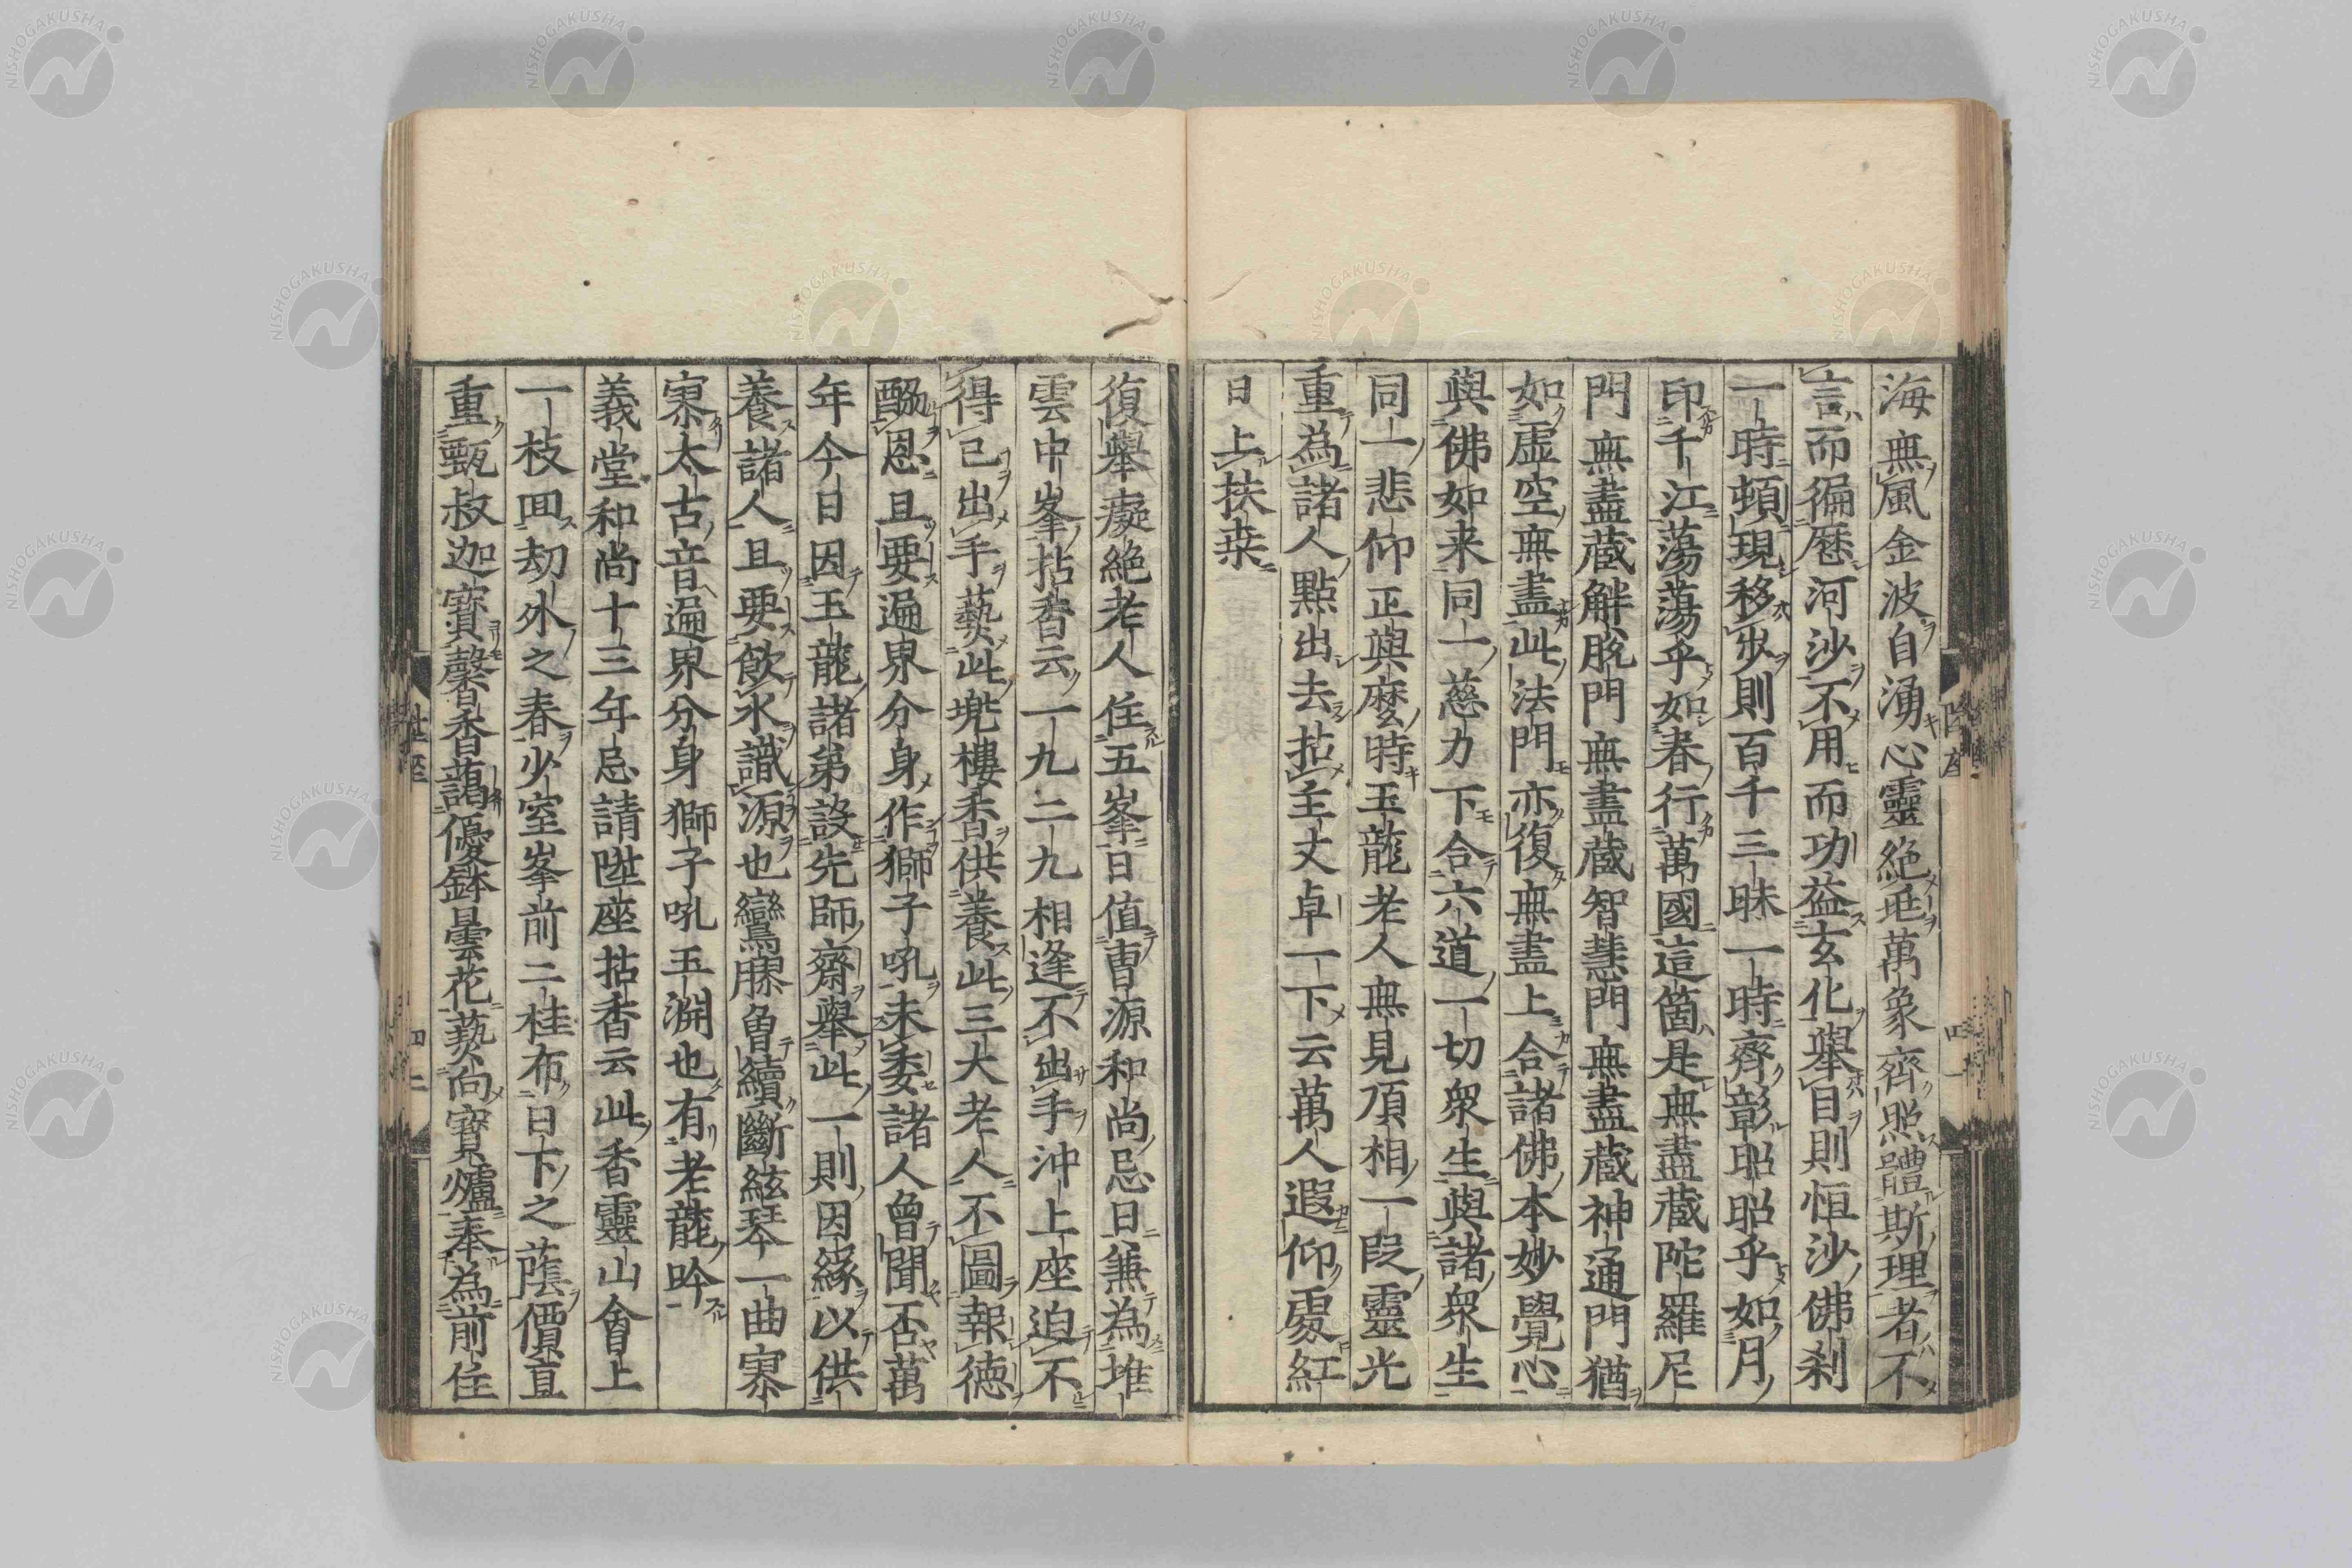 海無風金波自湧心靈絶垢萬象齊照體斯理者不
言而徧歴河沙不用而功益玄化舉目則恒沙佛刹
一時頓現移歩則百千三昧一時齊彰昭昭乎如月
印千江蕩蕩乎如春行萬國這箇是無盡藏陀羅尼
門無盡藏解脱門無盡藏智慧門無盡藏神通門猶
如虚空無盡此法門亦復無盡上合諸佛本妙覺心
與佛如来同一慈力下合六道一切衆生與諸衆生
同一悲仰正與麼時玉龍老人無見頂相一段靈光
重為諸人點出去拈主丈卓一下云萬人遐仰處紅
日上扶桒
復舉癡絶老人住五峯日值曹源和尚忌日兼為堆
雲中峯拈香云一九二九相逢不出手沖上座迫不
得已出手爇此兠樓香供養此三大老人不圖報德
酬恩且要遍界分身作獅子吼未委諸人曾聞否萬
年今日因玉龍諸弟設先師齋舉此一則因緣以供
養諸人且要飲水識源也鸞膠曾續斷絃琴一曲寥
寥太古音遍界分身獅子吼玉淵也有老龍吟
義堂和尚十三年忌請陞座拈香云此香靈山會上
一枝回劫外之春少室峯前二桂布日下之蔭價直
重甄叔迦寶馨香藹優鉢曇花爇向寶爐奉為前住
陞座
四一
陞座
四二
NISHOGAKUSHA